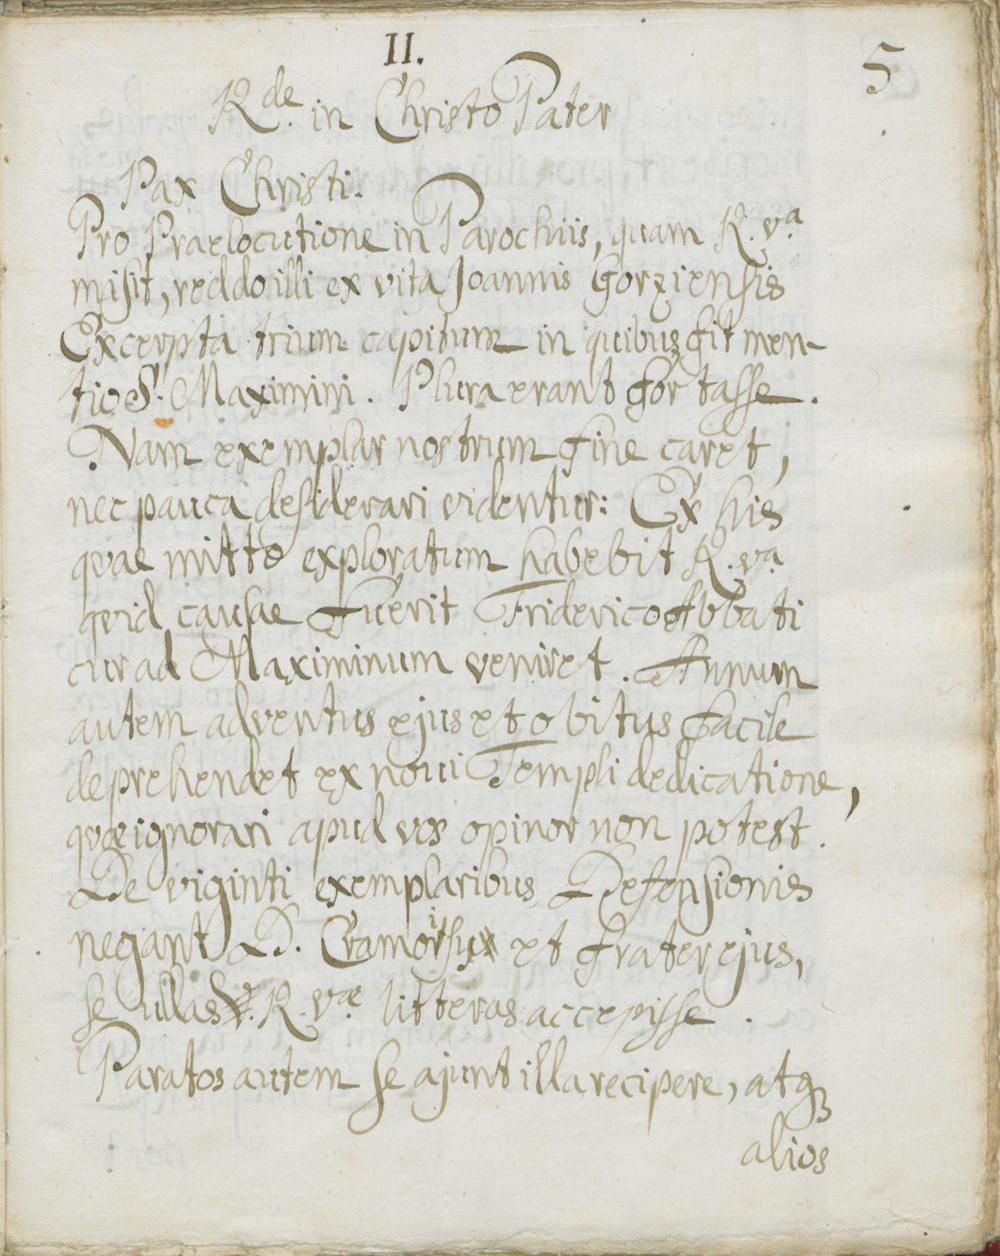 II.
5
R.de in Christo Pater
Pax Christi.
Pro Praelocutione in Parochiis, quam R. v.a
misit, reddo illi ex vita Joannis Gorziensis
Excerpta trium capitum in quibus fit men-
tio S. Maximini. Plura erant fortasse.
Nam exemplar nostrum fine caret,
nec pauca desiderari videntur: Ex his
quae mitto exploratum habebit R. va.
quid causae fuerit Friderico Abbati
cur ad Maximinum veniret. Annum
autem adventus ejus et obitus facile
deprehendet ex novi Templi dedicatione,
quae ignorari apud vos opinor non potest.
De viginti exemplaribus Defensionis
negant D. et frater ejus,
se ullas R. vae litteras accepisse.
Paratos autem se ajunt illa recipere, atq;
alios